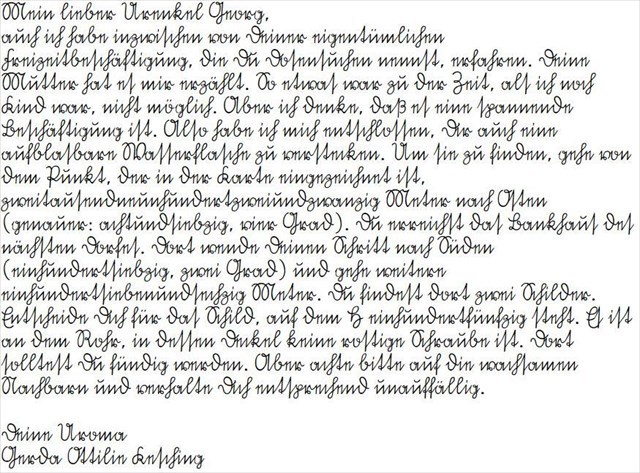 Mein lieber Urenkel Georg,
auch ich habe inzwischen von Deiner eigentümlichen
Freizeitbeschäftigung, die Du Dosensuchen nennst, erfahren. Deine
Mutter hat es mir erzählt. So etwas war zu der Zeit, als ich noch
Kind war, nicht möglich. Aber ich denke, daß es eine spannende
Beschäftigung ist. Also habe ich mich entschlossen, Dir auch eine
aufblasbare Wasserflasche zu verstecken. Um sie zu finden, gehe von
dem Punkt, der in der Karte eingezeichnet ist,
zweitausendneunhundertzweiundzwanzig Meter nach Osten
(genauer: achtundsiebzig, vier Grad). Du erreichst das Bankhaus des
nächsten Dorfes. Dort wende Deinen Schritt nach Süden
(einhundertsiebzig, zwei Grad) und gehe weitere
einhundertsiebenundsechzig Meter. Du findest dort zwei Schilder.
Entscheide Dich für das Schild, auf dem H einhundertfünfzig steht. Es ist
an dem Rohr, in dessen Deckel keine rostige Schraube ist. Dort
solltest Du fündig werden. Aber achte bitte auf die wachsamen
Nachbarn und verhalte Dich entsprechend unauffällig.
Deine Uroma
Gerda Ottilie Kesching